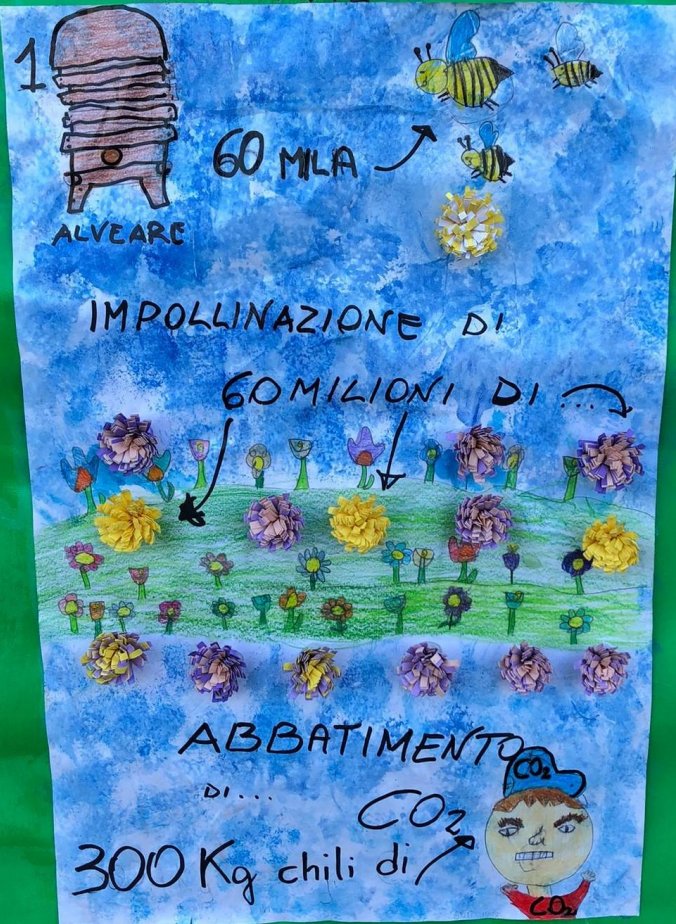 1
ALVEARE
60 MILA
IMPOLLINAZIONE DI
60 MILIONI DI ...
ABBATIMENTO
DI....
CO2
300 Kg chili di
CO2
CO2